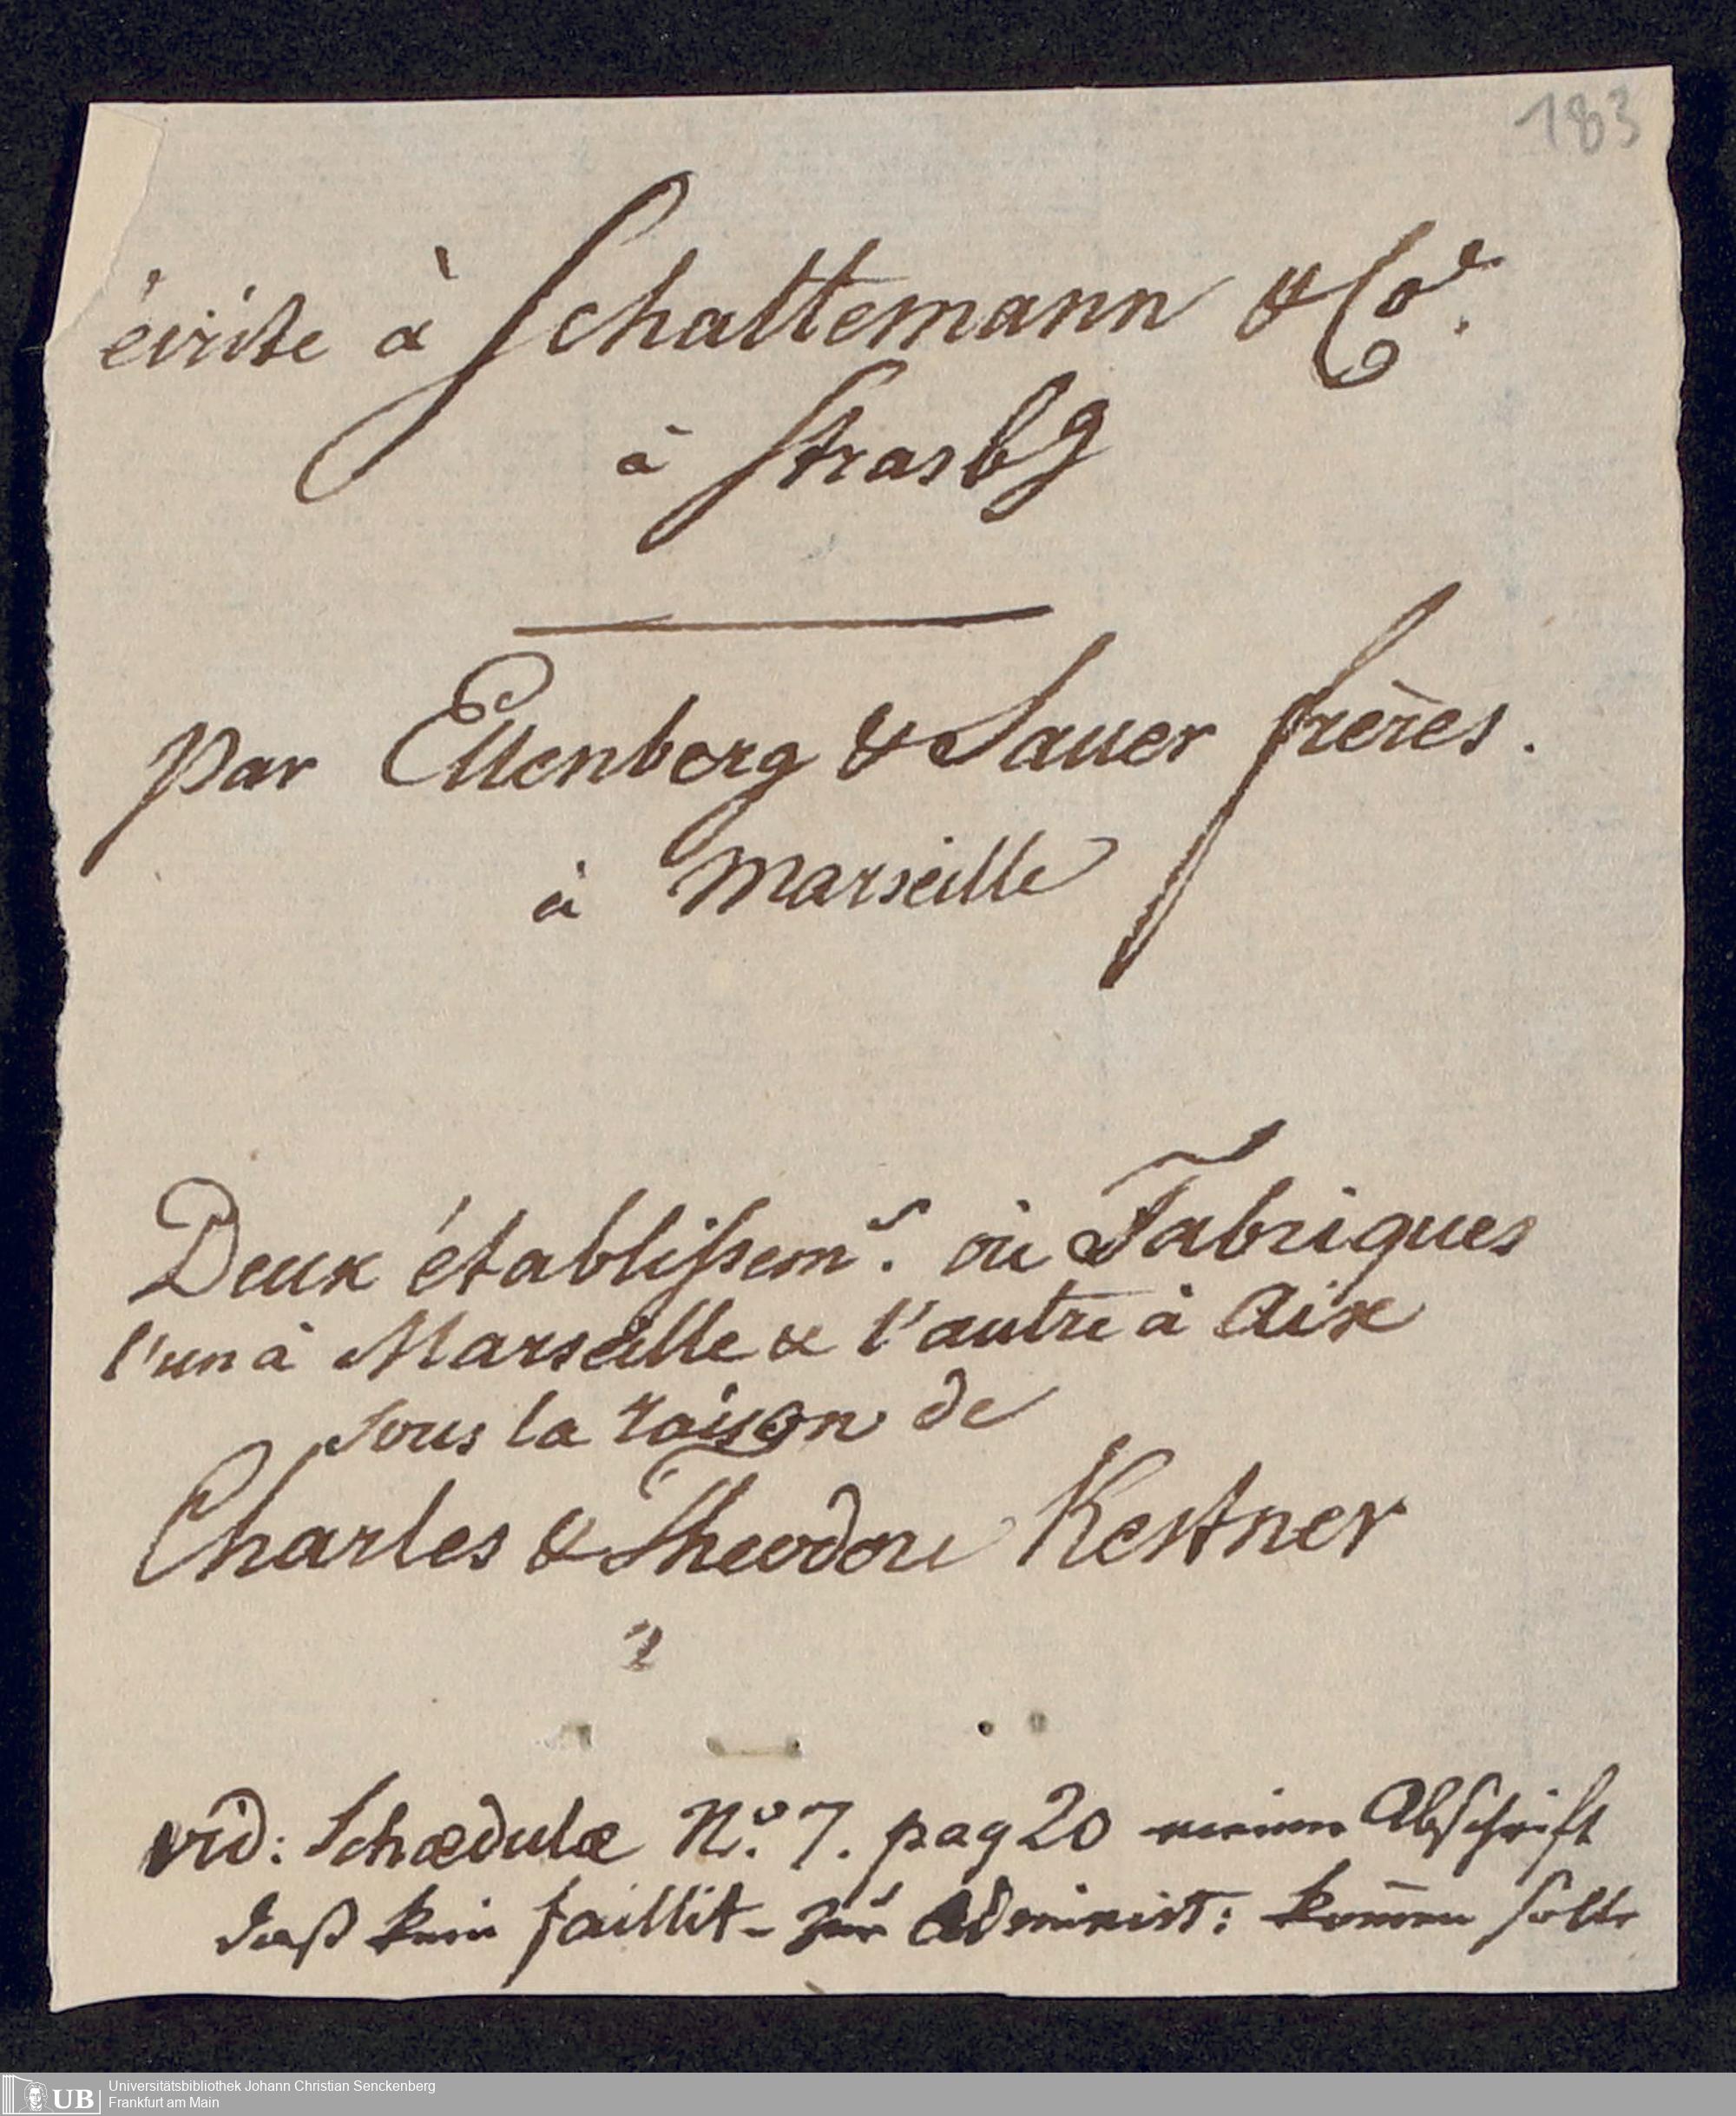 183
écrite à Schattemann & Coe.
à Strasbg
par Ellenberg & Sauer frères.
à Marseille
Deux établissems. où Fabriques
l'un à Marseille & l'autre à Aix
sous la raison de
Charles & Theodore Kestner
vid: Schædulæ No. 7. pag 20 meiner Abschrift
daß kein faillit - zur Administ: kom̄en solle
UB
Universitätsbibliothek Johann Christian Senckenberg
Frankfurt am Main